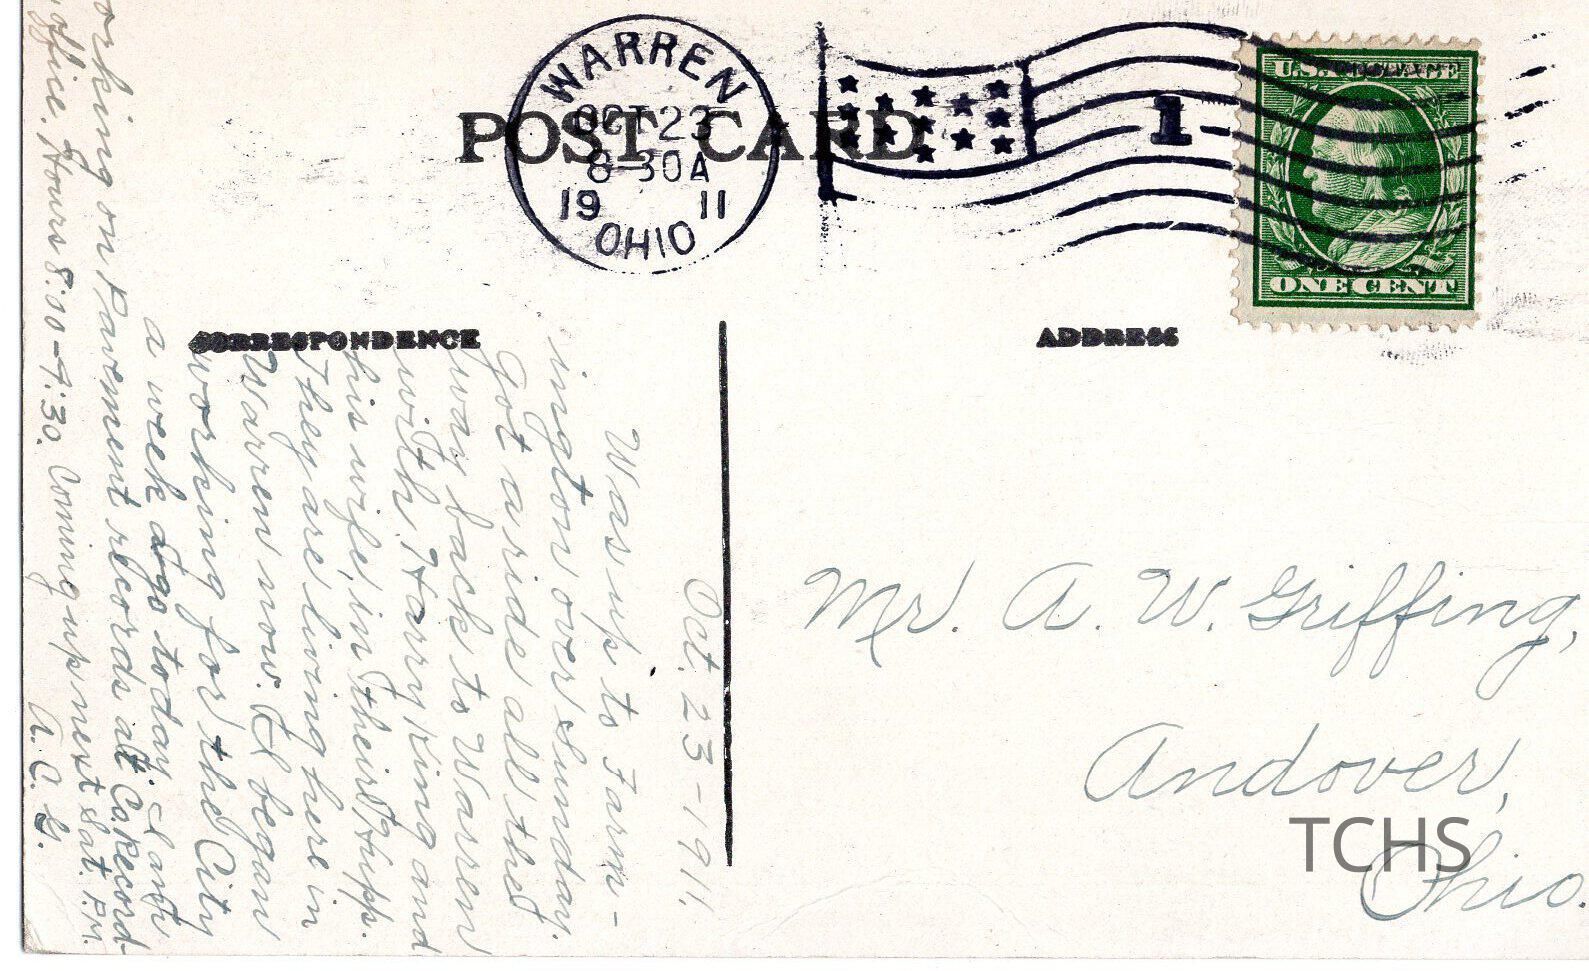 POST CARD
WARREN
OCT 23
8-30A
1911
OHIO
1
U.S. POSTAGE
ONE CENT
CORRESPONDENCE
ADDRESS
Oct. 23-1911.
Was up to Farm-
ington over Sunday.
Got a ride all the
way back to Warren
with Harry King and
his wife, in their Hupp.
They are living here in
Warren now. I began
working for the City
a week ago today. I am
orking on Pavement records at Co. Record-
office. Hours 8:00-4:30. Coming up next Sat. P.M.
A. C. G.
Mr. A. W. Griffing,
Andover,
Ohio.
TCHS